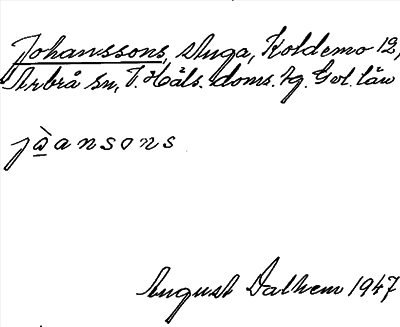 Johanssons, stuga, Koldemo 12,
Arbrå sn, V. Häls. doms. tg. Gvl. län
jòansons
August Dalhem 1947